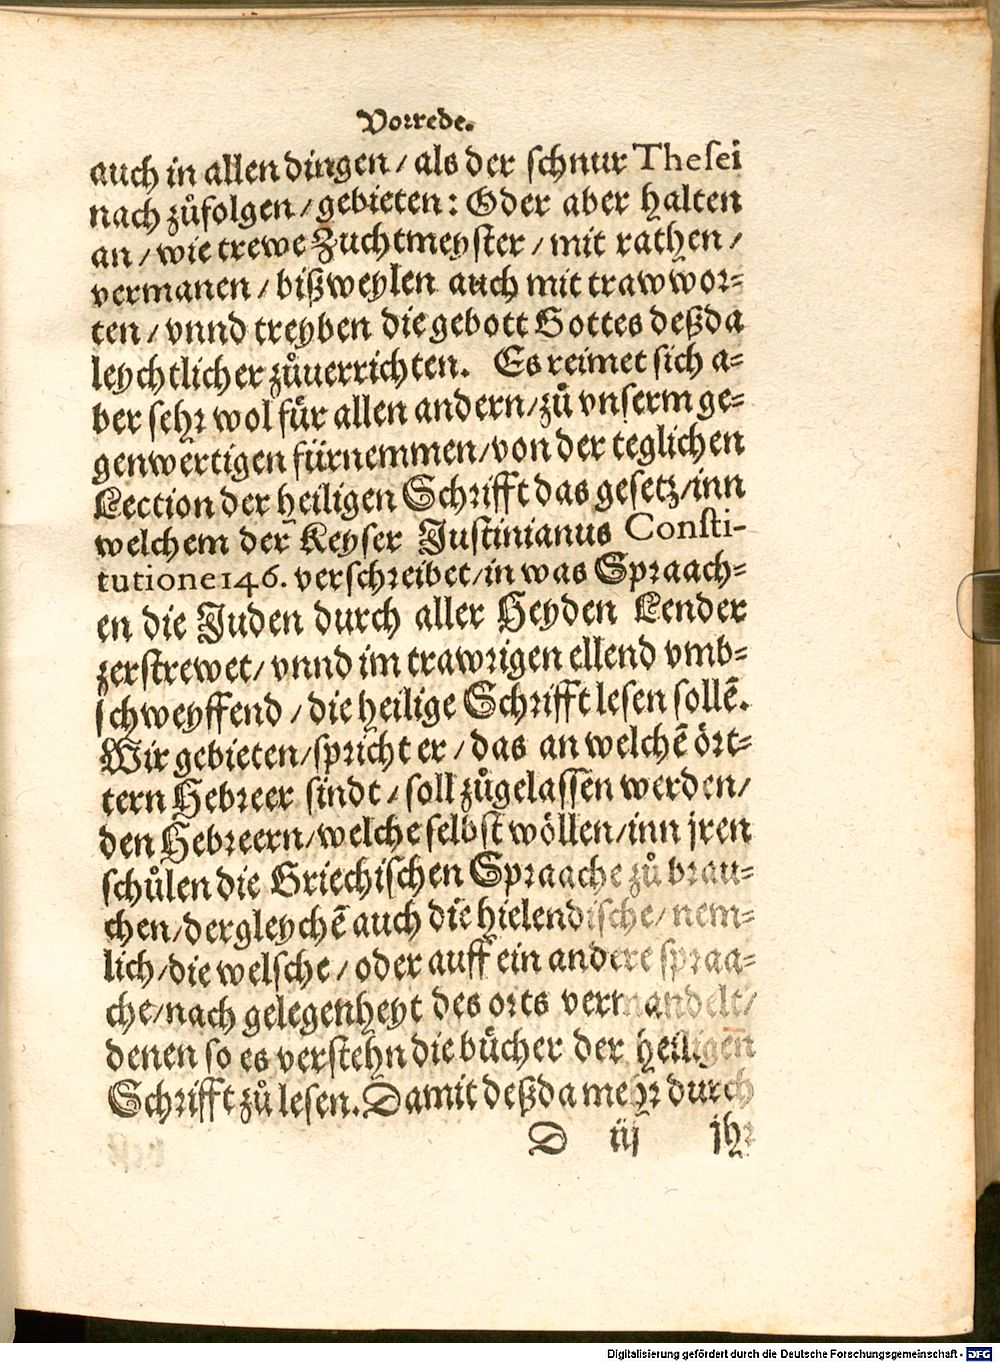 Vorrede.
auch in allen dingen / als der schnur Thesei
nach zůfolgen / gebieten: Oder aber halten
an / wie trewe Zuchtmeyster / mit rathen /
vermanen / bißweylen auch mit trawwor⸗
ten / vnnd treyben die gebott Gottes deßda
leychtlicher zůuerrichten. Es reimet sich a⸗
ber sehr wol für allen andern / zů vnserm ge⸗
genwertigen fürnemmen / von der teglichen
Lection der heiligen Schrifft das gesetz / inn
welchem der Keyser Justinianus Consti-
tutione 146. verschreibet / in was Spraach⸗
en die Juden durch aller Heyden Lender
zerstrewet / vnnd im trawrigen ellend vmb⸗
schweyffend / die heilige Schrifft lesen sollẽ.
Wir gebieten / spricht er / das an welchẽ ört⸗
tern Hebreer sindt / soll zůgelassen werden /
den Hebreern / welche selbst wöllen / inn jren
schůlen die Griechischen Spraache zů brau⸗
chen / dergleychẽ auch die hielendische / nem⸗
lich / die welsche / oder auff ein andere spraa⸗
che / nach gelegenheyt des orts vermandelt /
denen so es verstehn die bücher der heiligen
Schrifft zů lesen. Damit deßda mehr durch
D iij jhr
Digitalisierung gefördert durch die Deutsche Forschungsgemeinschaft - DFG